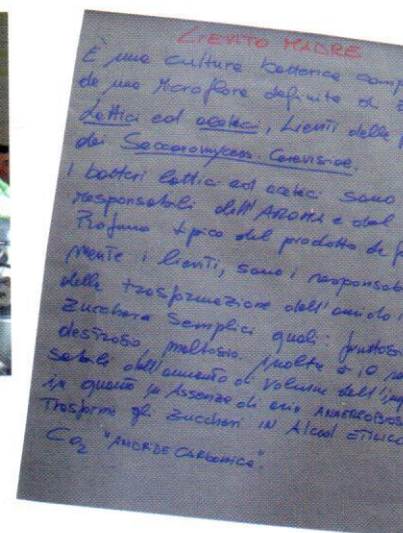 LIEVITO MADRE
È una cultura batterica comp
da una Microflora definita di B
Lattici ed acetaci, Lieviti della f
dei Saccoromyces. Cerevisiae.
I batteri lattici ed acetaci sono
responsabili dell'AROMA e del
Profumo tipico del prodotto da f
mente i lieviti, sono i responsab
della trasformazione dell'amido i
Zucchero Semplici quali: fruttosi
destrosio, maltosio. Inoltre è
sabile dell'aumento di Volume dell'imp
in quanto in Assenza di aria ANAEROBIOS
Trasforma gli Zuccheri IN Alcool ETILICO
CO2 "ANIDRIDE CARBONICA".